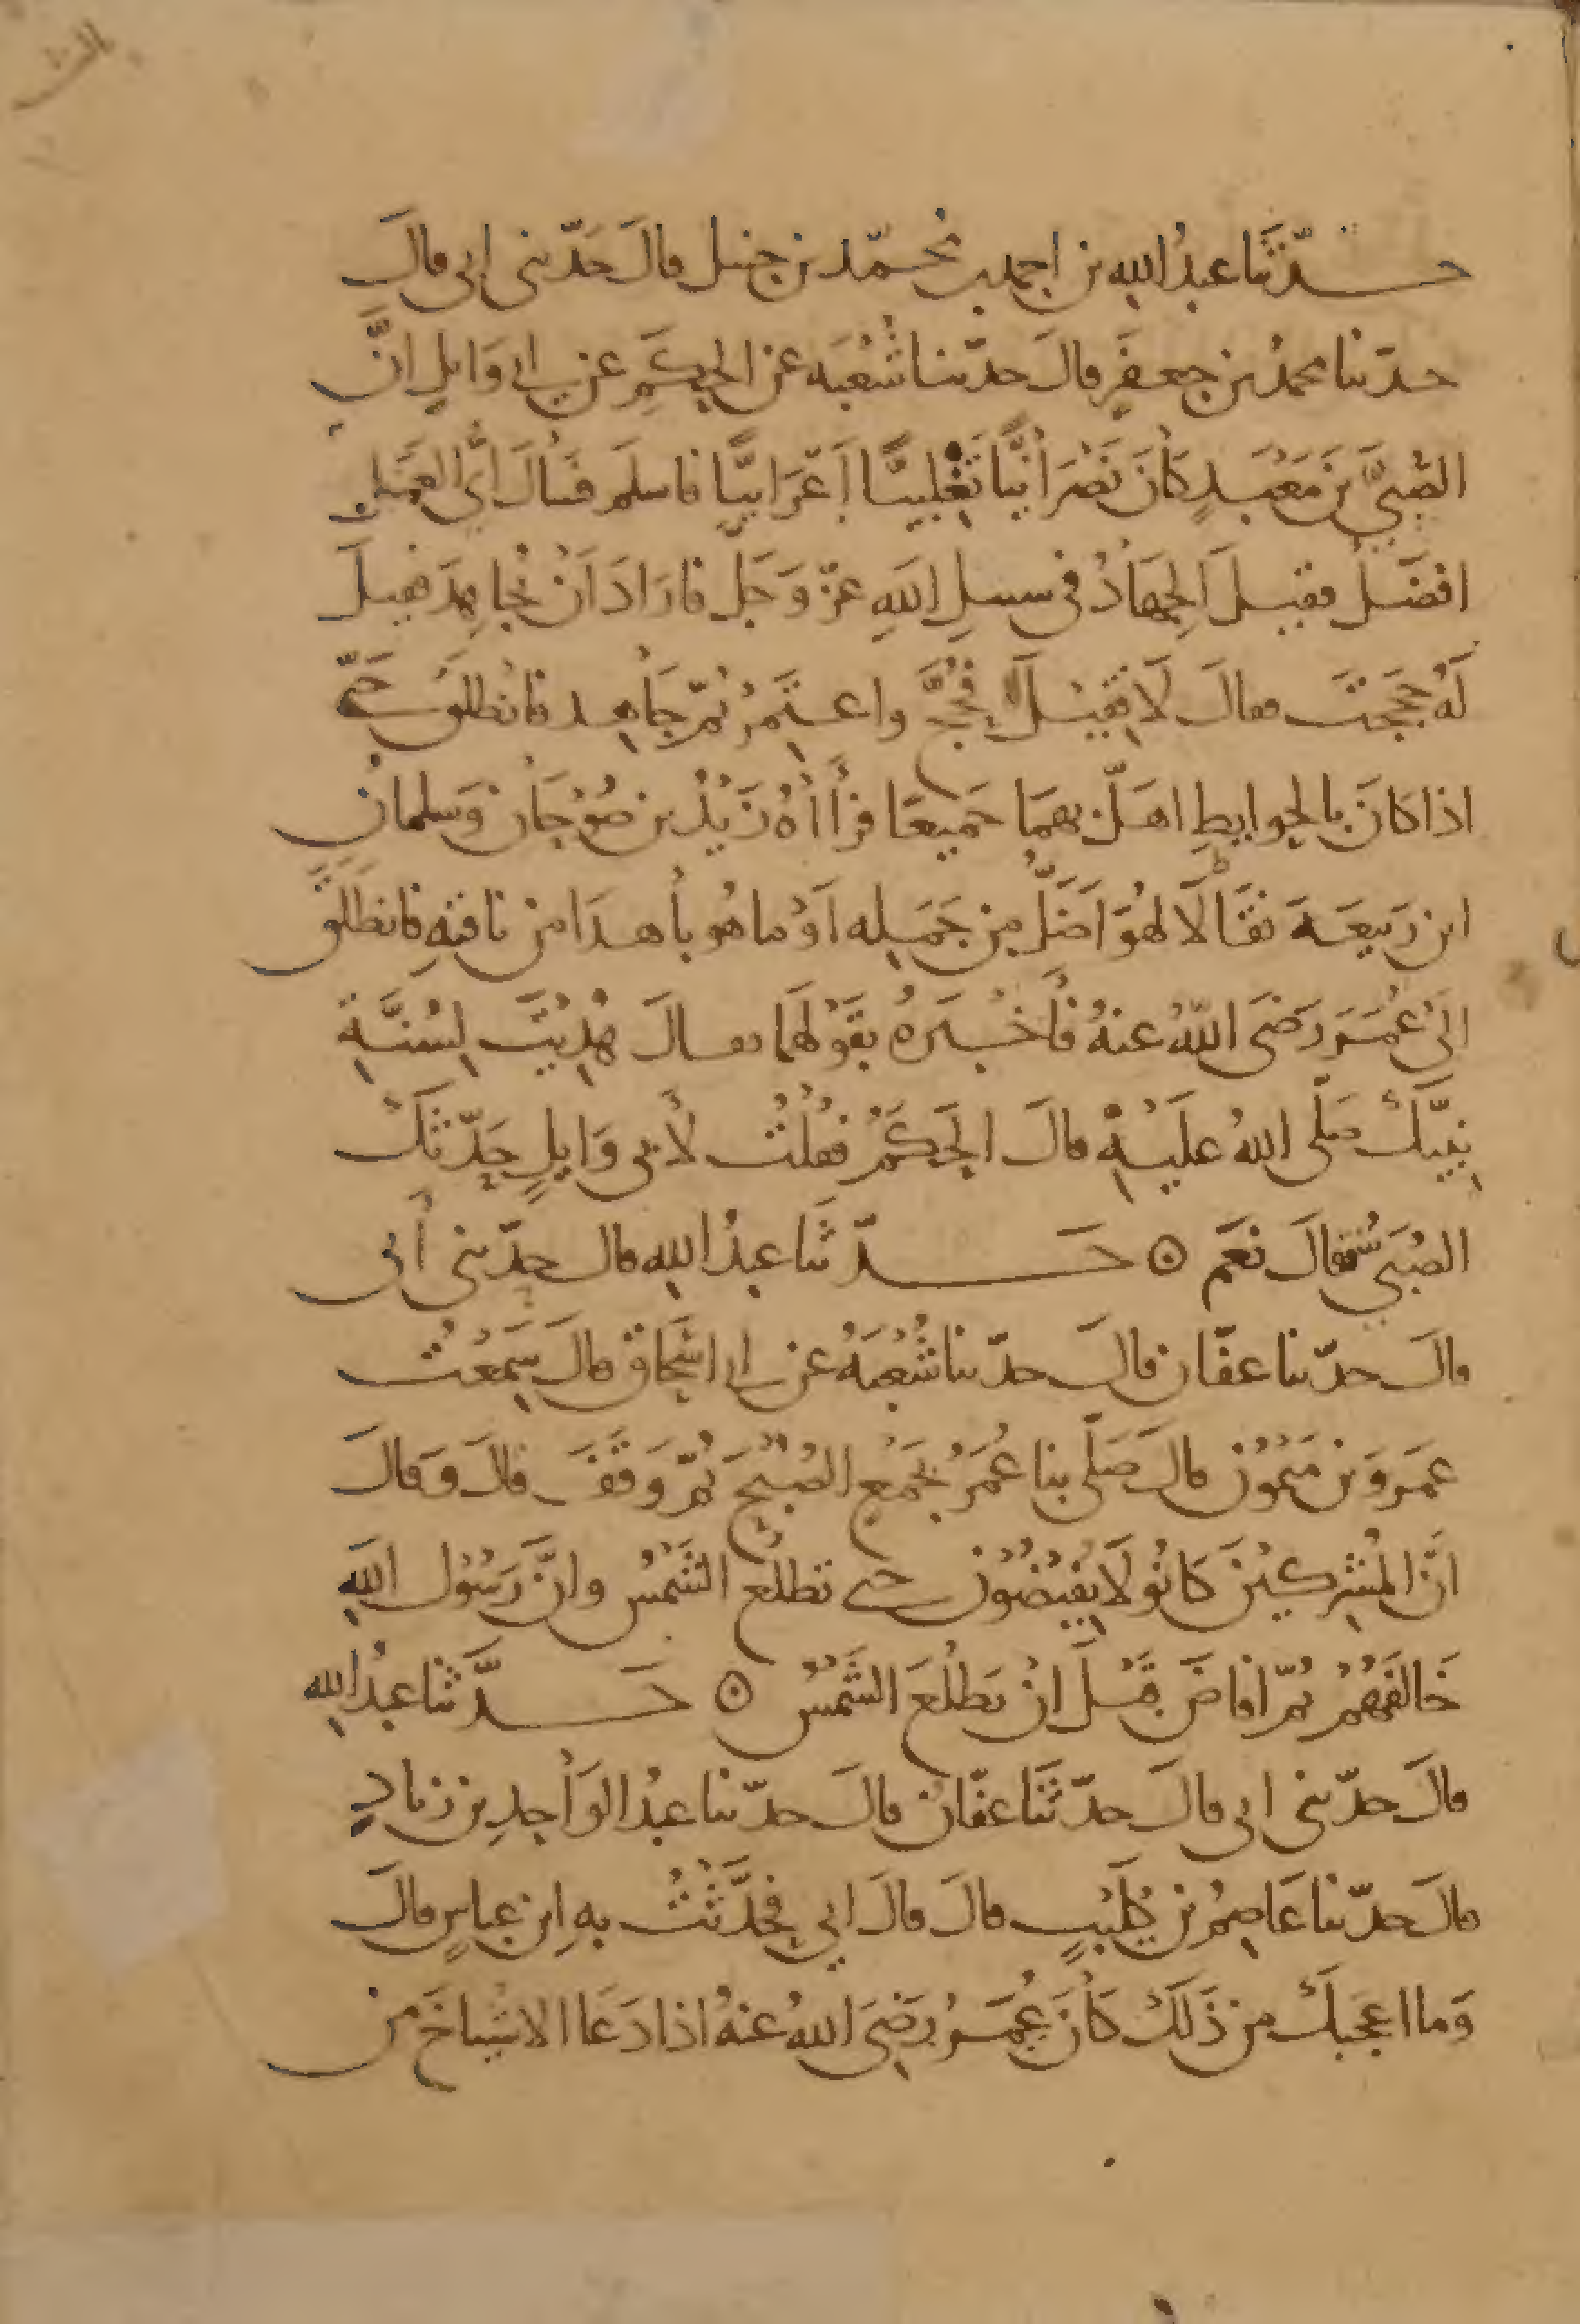 حدّثنا عبدُ الله بن احمد بن محمّد بن حنبل قالَ حَدّثنى ابى قالَ
حدّثنا محمدُ بن جعفرٍ قالَ حدّثنا شُعْبَه عن الحكَمِ عن ابى وَايلٍ انَّ
الصُّبَيَّ بنَ مَعْبَدٍ كَانَ نَصْرَانيًّا تَغْلِبيًّا اَعْرَابيًّا فاسلَم فسُالَ اَيُّ العَمَلِ
افضَلُ فقيلَ الجِهَادُ فى سبيلِ اللهِ عزّ وَجَلّ فارَادَ اَنْ يُجاهِدَ فقيلَ
لَهُ حَجَجْتَ فقالَ لَا فقيْلَ حُجَّ واعتَمِرْ ثمّ جَاهِد فانطلَقَ حَتّى
اذا كَانَ بالحوابطِ اهَلّ بهمَا جَميعًا فرأاهُ زَيْدُ بن صُوْحَان وَسلمانُ
ابن رَبيعَةَ فقَالَا لهُوَ اَضَلُّ مِن جَمَلِه اَوْ ما هُو بأهدَا من ناقتِهِ فانطَلَقَ
الىٰ عُمَرَ رَضىَ اللهُ عنهُ فأخْبَرَهُ بقَوْلهمَا فقالَ هُدِيْتَ لِسُنَّةِ
نبيّكَ صَلّى اللهُ علَيْهِ قالَ الحَكَمُ فقُلْتُ لأبى وَايلٍ حَدّثكَ
الصُبَي فقالَ نعَم ⊙ حَدّثنا عبدُ اللهِ قال حدّثنى أبى
قالَ حدّثنا عفّان قالَ حدّثنا شُعْبَهُ عن ابى اسْحَاق قالَ سَمِعْتُ
عمرَو بن مَيْمُوْن قالَ صَلّى بنا عُمَرُ بجَمْعٍ الصُبْحَ ثُمّ وَقَفَ قالَ وَقالَ
انّ المُشْرِكيْنَ كانُو لَا يفيْضُوْنَ حتى تطلعَ الشَمْسُ وانَّ رَسُوْل اللهِ
خَالفَهُمْ ثمّ افاضَ قبْلَ انْ تَطْلُعَ الشَمْسُ ⊙ حَدَّثنا عبدُ اللهِ
قالَ حدّثنى ابى قالَ حدّثَنَا عفّان قالَ حدّثنا عبدُ الوَاحِدِ بن زيادٍ
قالَ حدّثنا عَاصِمُ بن كُلَيْبٍ قالَ قالَ ابي فحَدَّثْتُ بهِ ابن عباسٍ قالَ
وَما اعجَبكَ من ذَلكَ كَانَ عُمَرُ رَضىَ اللهُ عنهُ اذا دَعَا الاشيَاخَ من